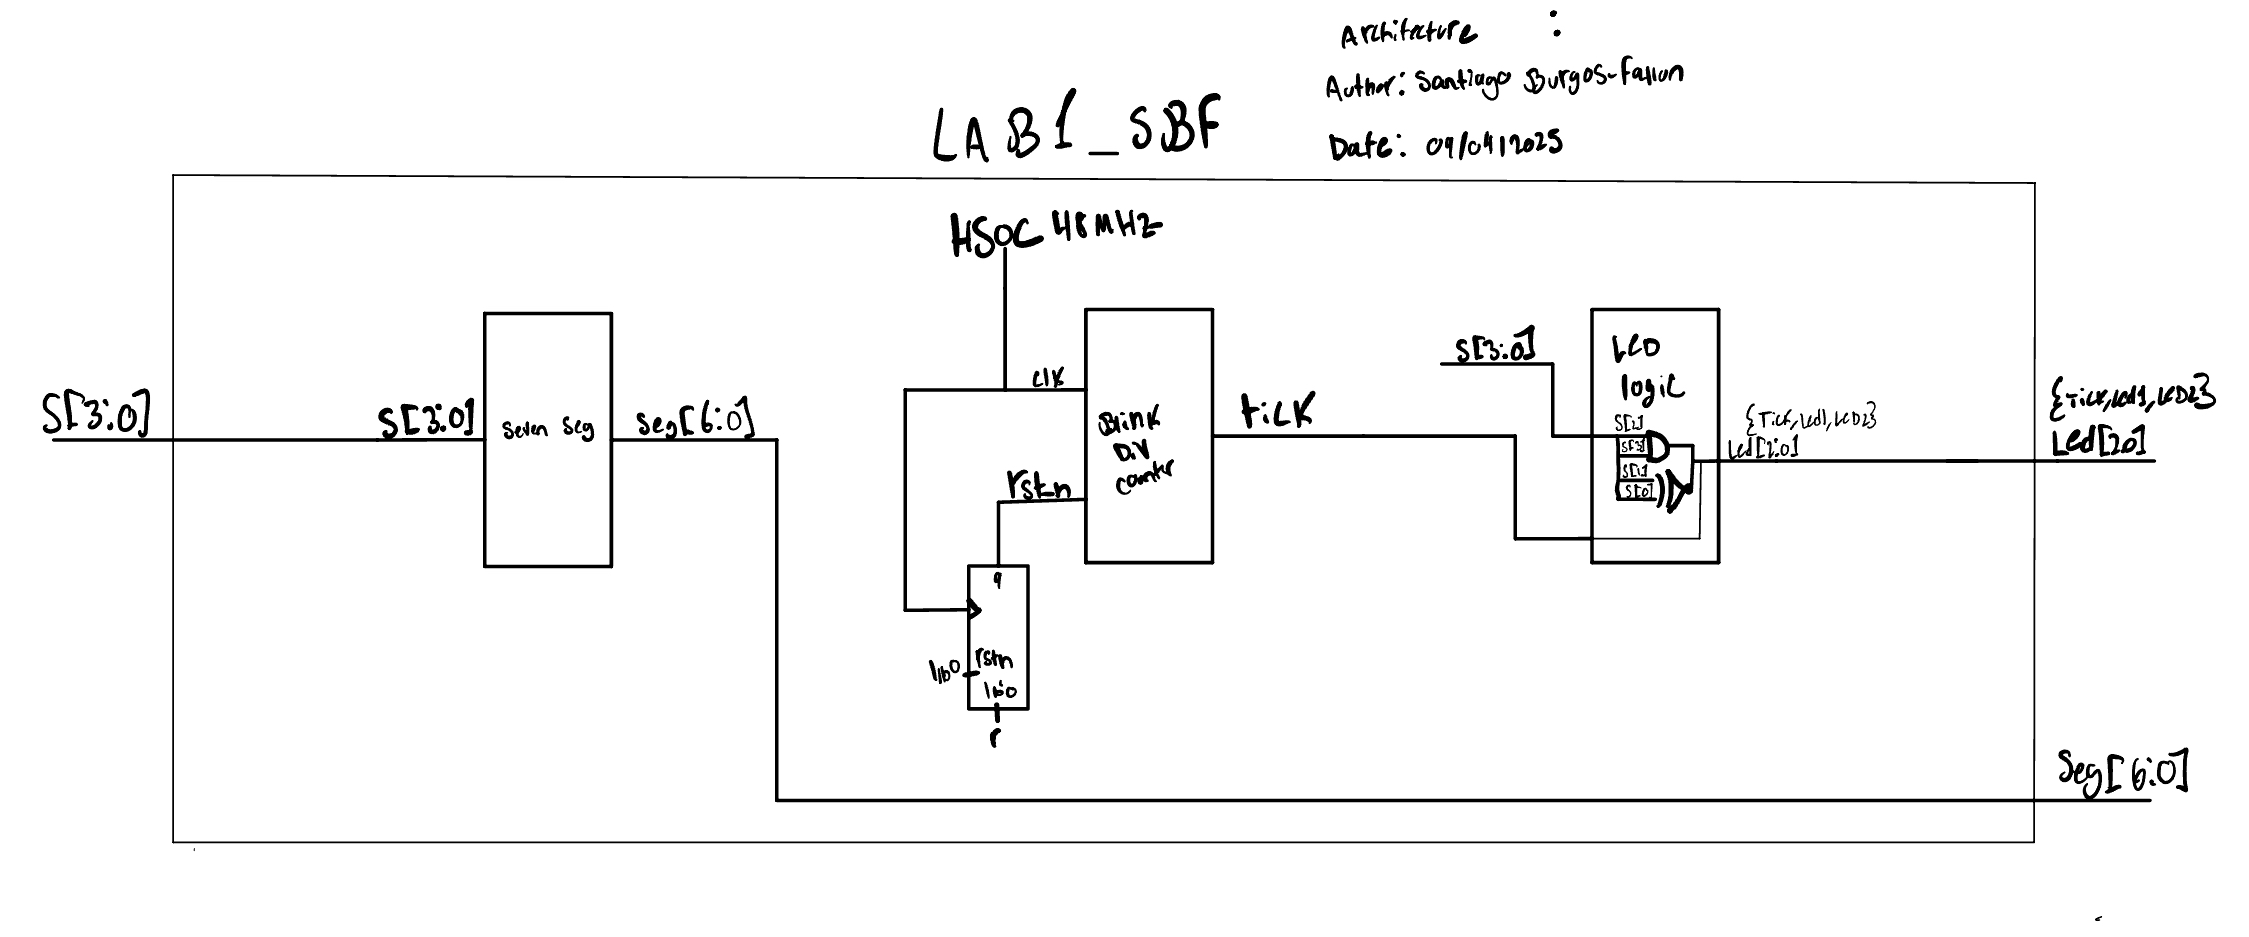 Architecture :
Author: Santiago Burgos-Fallon
Date: 09/04/2025
LAB1_SBF
HSOC 48MHZ
S[3:0]
S[3:0]
Seven Seg
Seg[6:0]
clk
rstn
Blink
Div
counter
tick
S[3:0]
LED
logic
S[2]
S[3]
S[1]
S[0]
{Tick, led1, LED2}
Led[2:0]
{Tick, led1, LED2}
Led[2:0]
q
rstn
1'b0
1'b0
r
Seg[6:0]